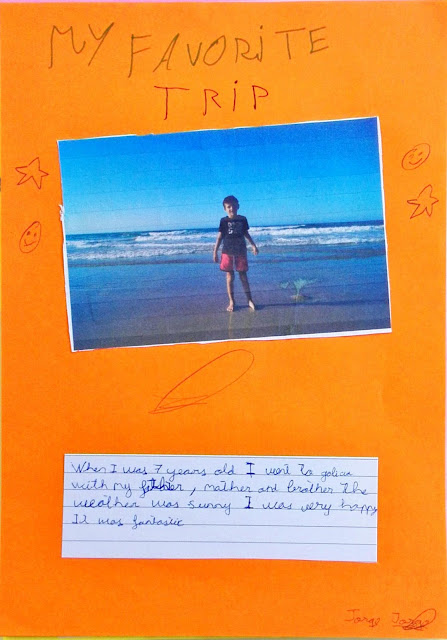 MY FAVORITE
TRIP
When I was 7 years old I went to galicia
with my father, mather and brother the
weather was sunny I was very happy
It was fantastic
Jorge